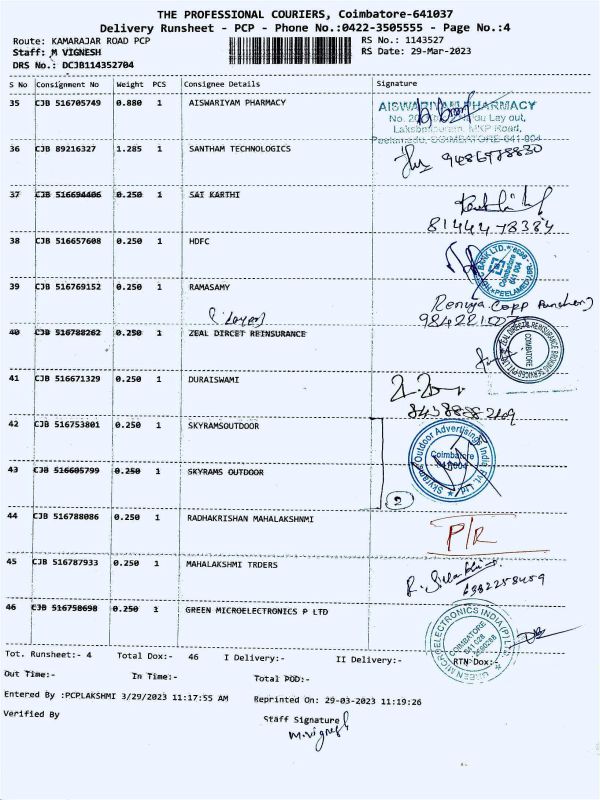 THE PROFESSIONAL COURIERS, Coimbatore-641037
Delivery Runsheet - PCP - Phone No.:0422-3505555 - Page No.:4
Route: KAMARAJAR ROAD PCP RS No.: 1143527
Staff: M VIGNESH RS Date: 29-Mar-2023
DRS No.: DCJB114352704
S No Consignment No Weight PCS Consignee Details Signature
35 CJB 516705749 0.880 1 AISWARIYAM PHARMACY
AISWARIYAM PHARMACY
Lay out,
MKP Road,
Peelamedu, COIMBATORE-641 004
36 CJB 89216327 1.285 1 SANTHAM TECHNOLOGICS
37 CJB 516694406 0.250 1 SAI KARTHI
8144478384
38 CJB 516657608 0.250 1 HDFC
BANK LTD.
Coimbatore
641 004
39 CJB 516769152 0.250 1 RAMASAMY
40 CJB 516788262 0.250 1 ZEAL DIRCET REINSURANCE
COIMBATORE
41 CJB 516671329 0.250 1 DURAISWAMI
42 CJB 516753801 0.250 1 SKYRAMSOUTDOOR
Skyrams Outdoor Advertisings India Pvt. Ltd.
Coimbatore
43 CJB 516605799 0.250 1 SKYRAMS OUTDOOR
2
44 CJB 516788086 0.250 1 RADHAKRISHAN MAHALAKSHNMI
P/R
45 CJB 516787933 0.250 1 MAHALAKSHMI TRDERS
46 CJB 516758698 0.250 1 GREEN MICROELECTRONICS P LTD
GREEN MICROELECTRONICS INDIA (P) LTD
COIMBATORE
641 028
Tot. Runsheet:- 4 Total Dox:- 46 I Delivery:- II Delivery:- RTN Dox:-
Out Time:- In Time:- Total POD:-
Entered By :PCPLAKSHMI 3/29/2023 11:17:55 AM Reprinted On: 29-03-2023 11:19:26
Verified By Staff Signature
M.Vignesh